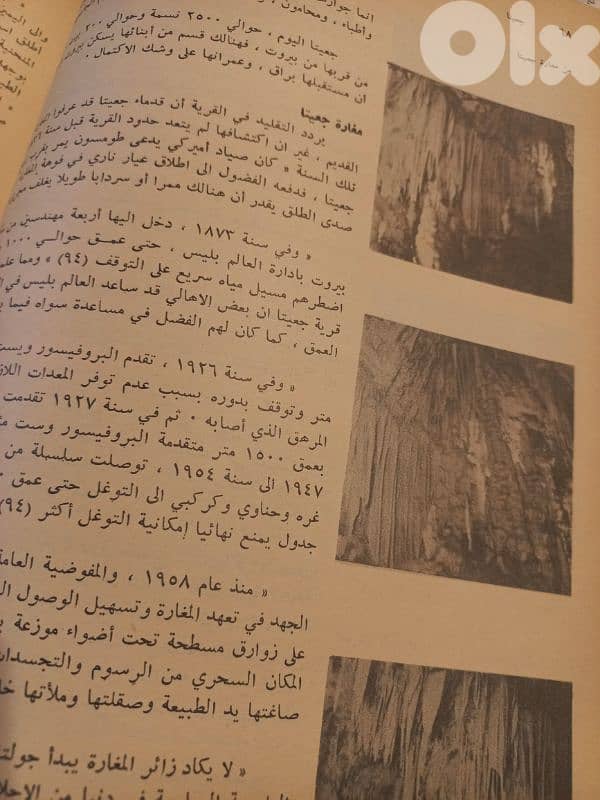 OLX
٦٨ جعيتا
مغارة جعيتا
انما جوارير
وأطباء ، ومحامون ،
جعيتا اليوم ، حوالي ٢٥٠٠ نسمة وحوالي ٢٠٠
من قربها من بيروت ، فهنالك قسم من أبنائها يسكن بيروت
ان مستقبلها براق ، وعمرانها على وشك الاكتمال .
مغارة جعيتا
يردد التقليد في القرية أن قدماء جعيتا قد عرفوا
القديم ، غير ان اكتشافها لم يتعد حدود القرية قبل سنة
تلك السنة « كان صياد أميركي يدعى طومسون يمر بقرب
جعيتا ، فدفعه الفضول الى اطلاق عيار ناري في فوهة
صدى الطلق يقدر أن هنالك ممرا أو سردابا طويلا يغلف
« وفي سنة ١٨٧٣ ، دخل اليها أربعة مهندسين من
بيروت بادارة العالم بليس ، حتى عمق حوالي ١٠٠٠
اضطرهم مسيل مياه سريع على التوقف (٩٤) » ومما
قرية جعيتا ان بعض الاهالي قد ساعد العالم بليس في
العمق ، كما كان لهم الفضل في مساعدة سواه فيما
« وفي سنة ١٩٢٦ ، تقدم البروفيسور ويست
متر وتوقف بدوره بسبب عدم توفر المعدات
المرهق الذي أصابه . ثم في سنة ١٩٢٧ تقدمت
بعمق ١٥٠٠ متر متقدمة البروفيسور وست
١٩٤٧ الى سنة ١٩٥٤ ، توصلت سلسلة من
غره وحناوي وكركبي الى التوغل حتى عمق
جدول يمنع نهائيا إمكانية التوغل أكثر (٩٤)
« منذ عام ١٩٥٨ ، والمفوضية العامة
الجهد في تعهد المغارة وتسهيل الوصول
على زوارق مسطحة تحت أضواء موزعة
المكان السحري من الرسوم والتجسدات
صاغتها يد الطبيعة وصقلتها وملأتها
« لا يكاد زائر المغارة يبدأ
في دنيا من